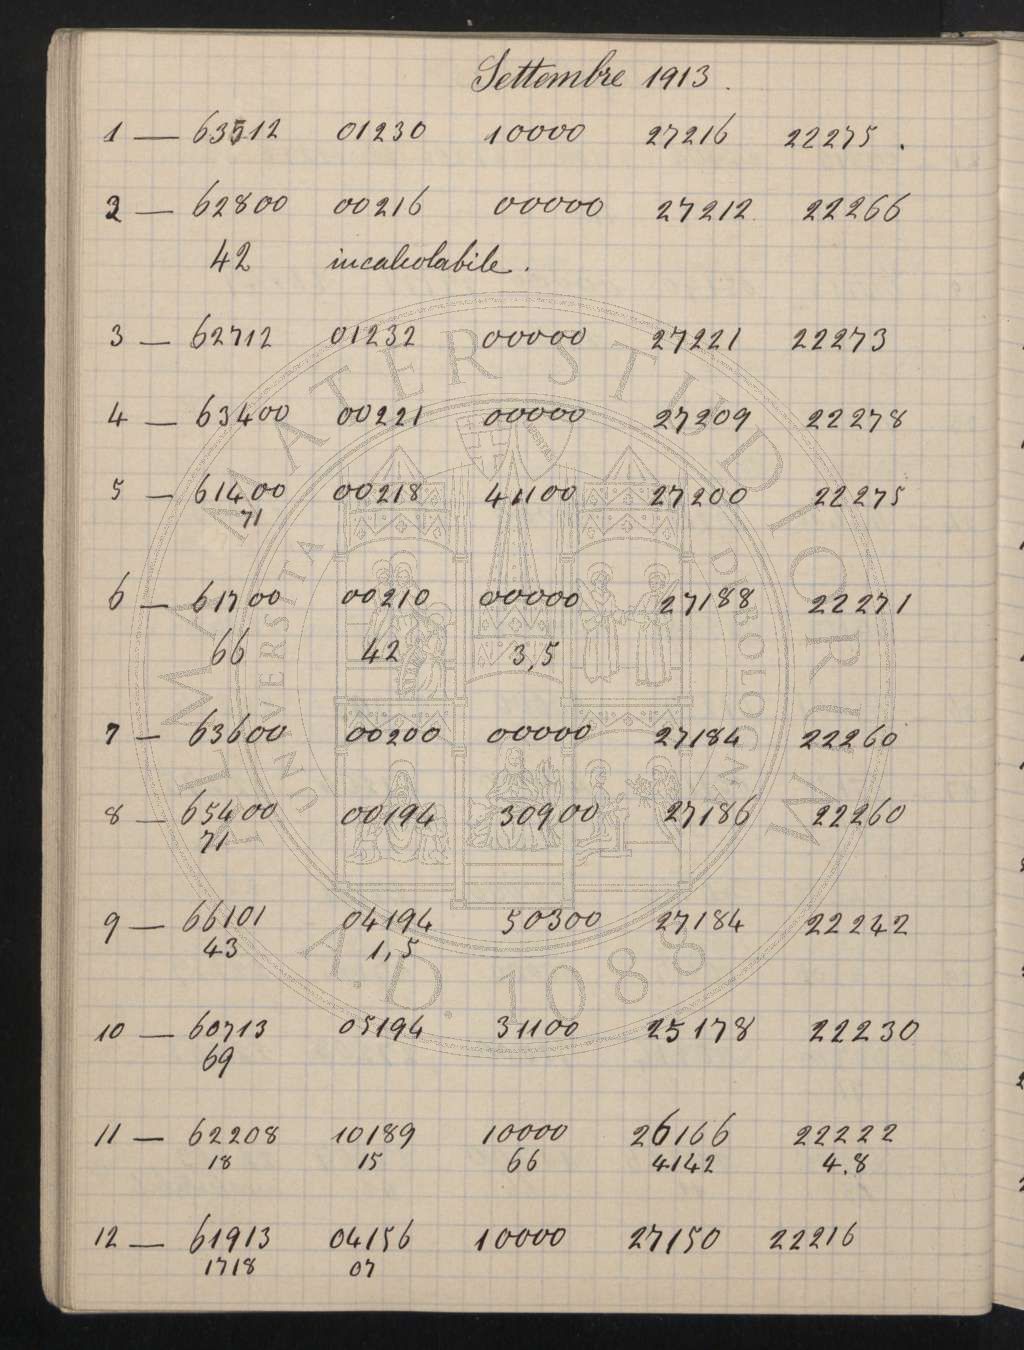 Settembre 1913.
1 — 63512 01230 10000 27216 22275.
2 — 62800 00216 00000 27212 22266
42 incalcolabile.
3 — 62712 01232 00000 27221 22273
4 — 63400 00221 00000 27209 22278
5 — 61400 00218 41100 27200 22275
71
6 — 61700 00210 00000 27188 22271
66 42 3,5
7 — 63600 00200 00000 27184 22260
8 — 65400 00194 30900 27186 22260
71
9 — 66101 04194 50300 27184 22242
43 1,5
10 — 60713 05194 31100 25178 22230
69
11 — 62208 10189 10000 26166 22222
18 15 66 4142 4.8
12 — 61913 04156 10000 27150 22216
1718 07
ALMA MATER STUDIORUM
UNIVERSITA DI BOLOGNA
A.D. 1088